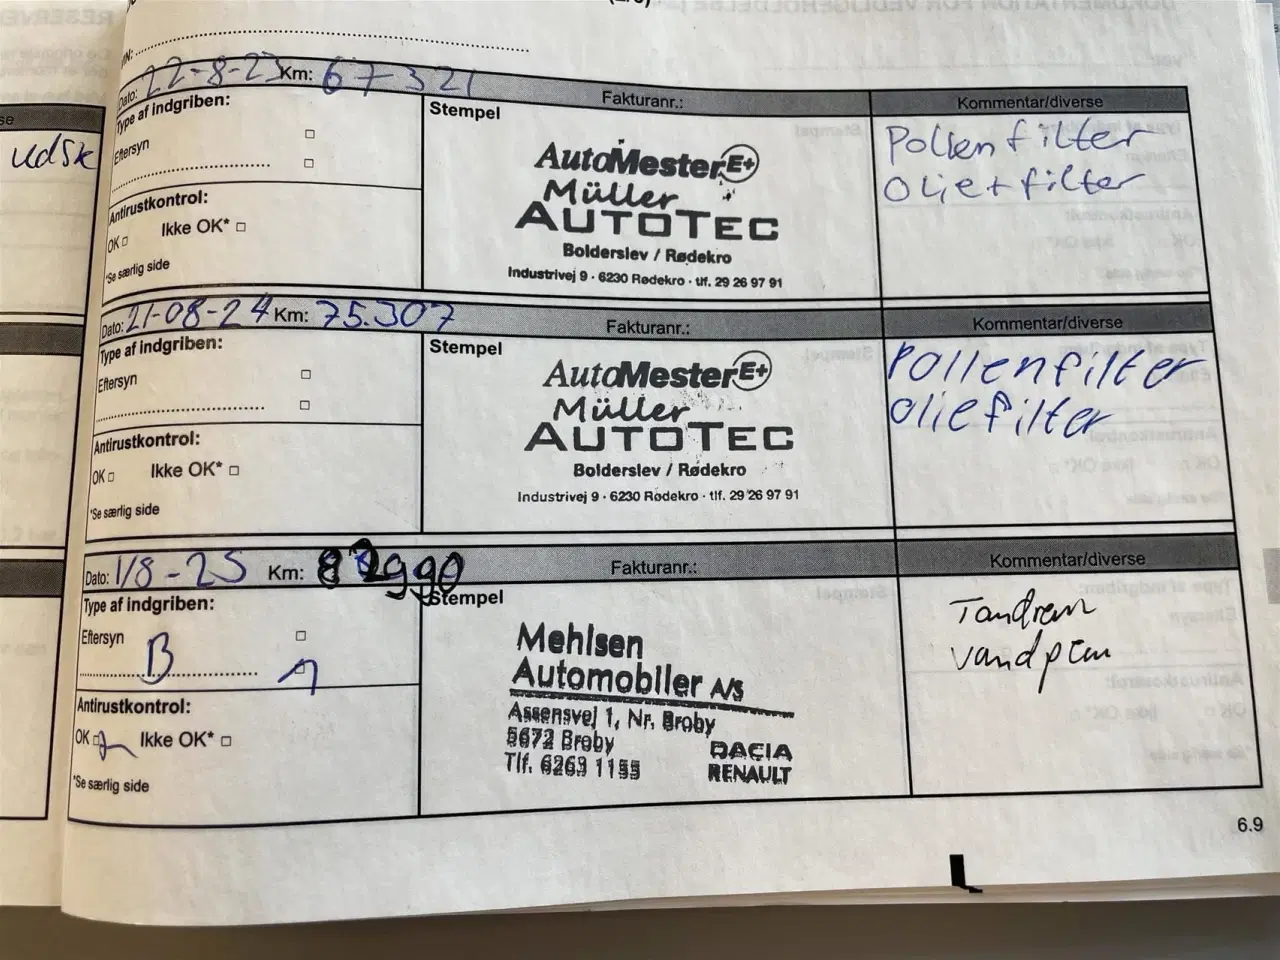 Dato: 22-8-23 Km: 67321 Fakturanr.: Kommentar/diverse
Type af indgriben:
Eftersyn
Antirustkontrol:
OK Ikke OK*
*Se særlig side
Stempel
AutoMester E+
Müller
AUTOTEC
Bolderslev / Rødekro
Industrivej 9 · 6230 Rødekro · tlf. 29 26 97 91
Pollenfilter
Olie + filter
udsk
Dato: 21-08-24 Km: 75.307 Fakturanr.: Kommentar/diverse
Type af indgriben:
Eftersyn
Antirustkontrol:
OK Ikke OK*
*Se særlig side
Stempel
AutoMester E+
Müller
AUTOTEC
Bolderslev / Rødekro
Industrivej 9 · 6230 Rødekro · tlf. 29 26 97 91
Pollenfilter
oliefilter
Dato: 1/8-25 Km: 82990 Fakturanr.: Kommentar/diverse
Type af indgriben:
Eftersyn
B
Antirustkontrol:
OK Ikke OK*
*Se særlig side
Stempel
Mehlsen
Automobiler A/S
Assensvej 1, Nr. Broby
5672 Broby DACIA
Tlf. 6263 1155 RENAULT
Tandrem
vandpum
6.9